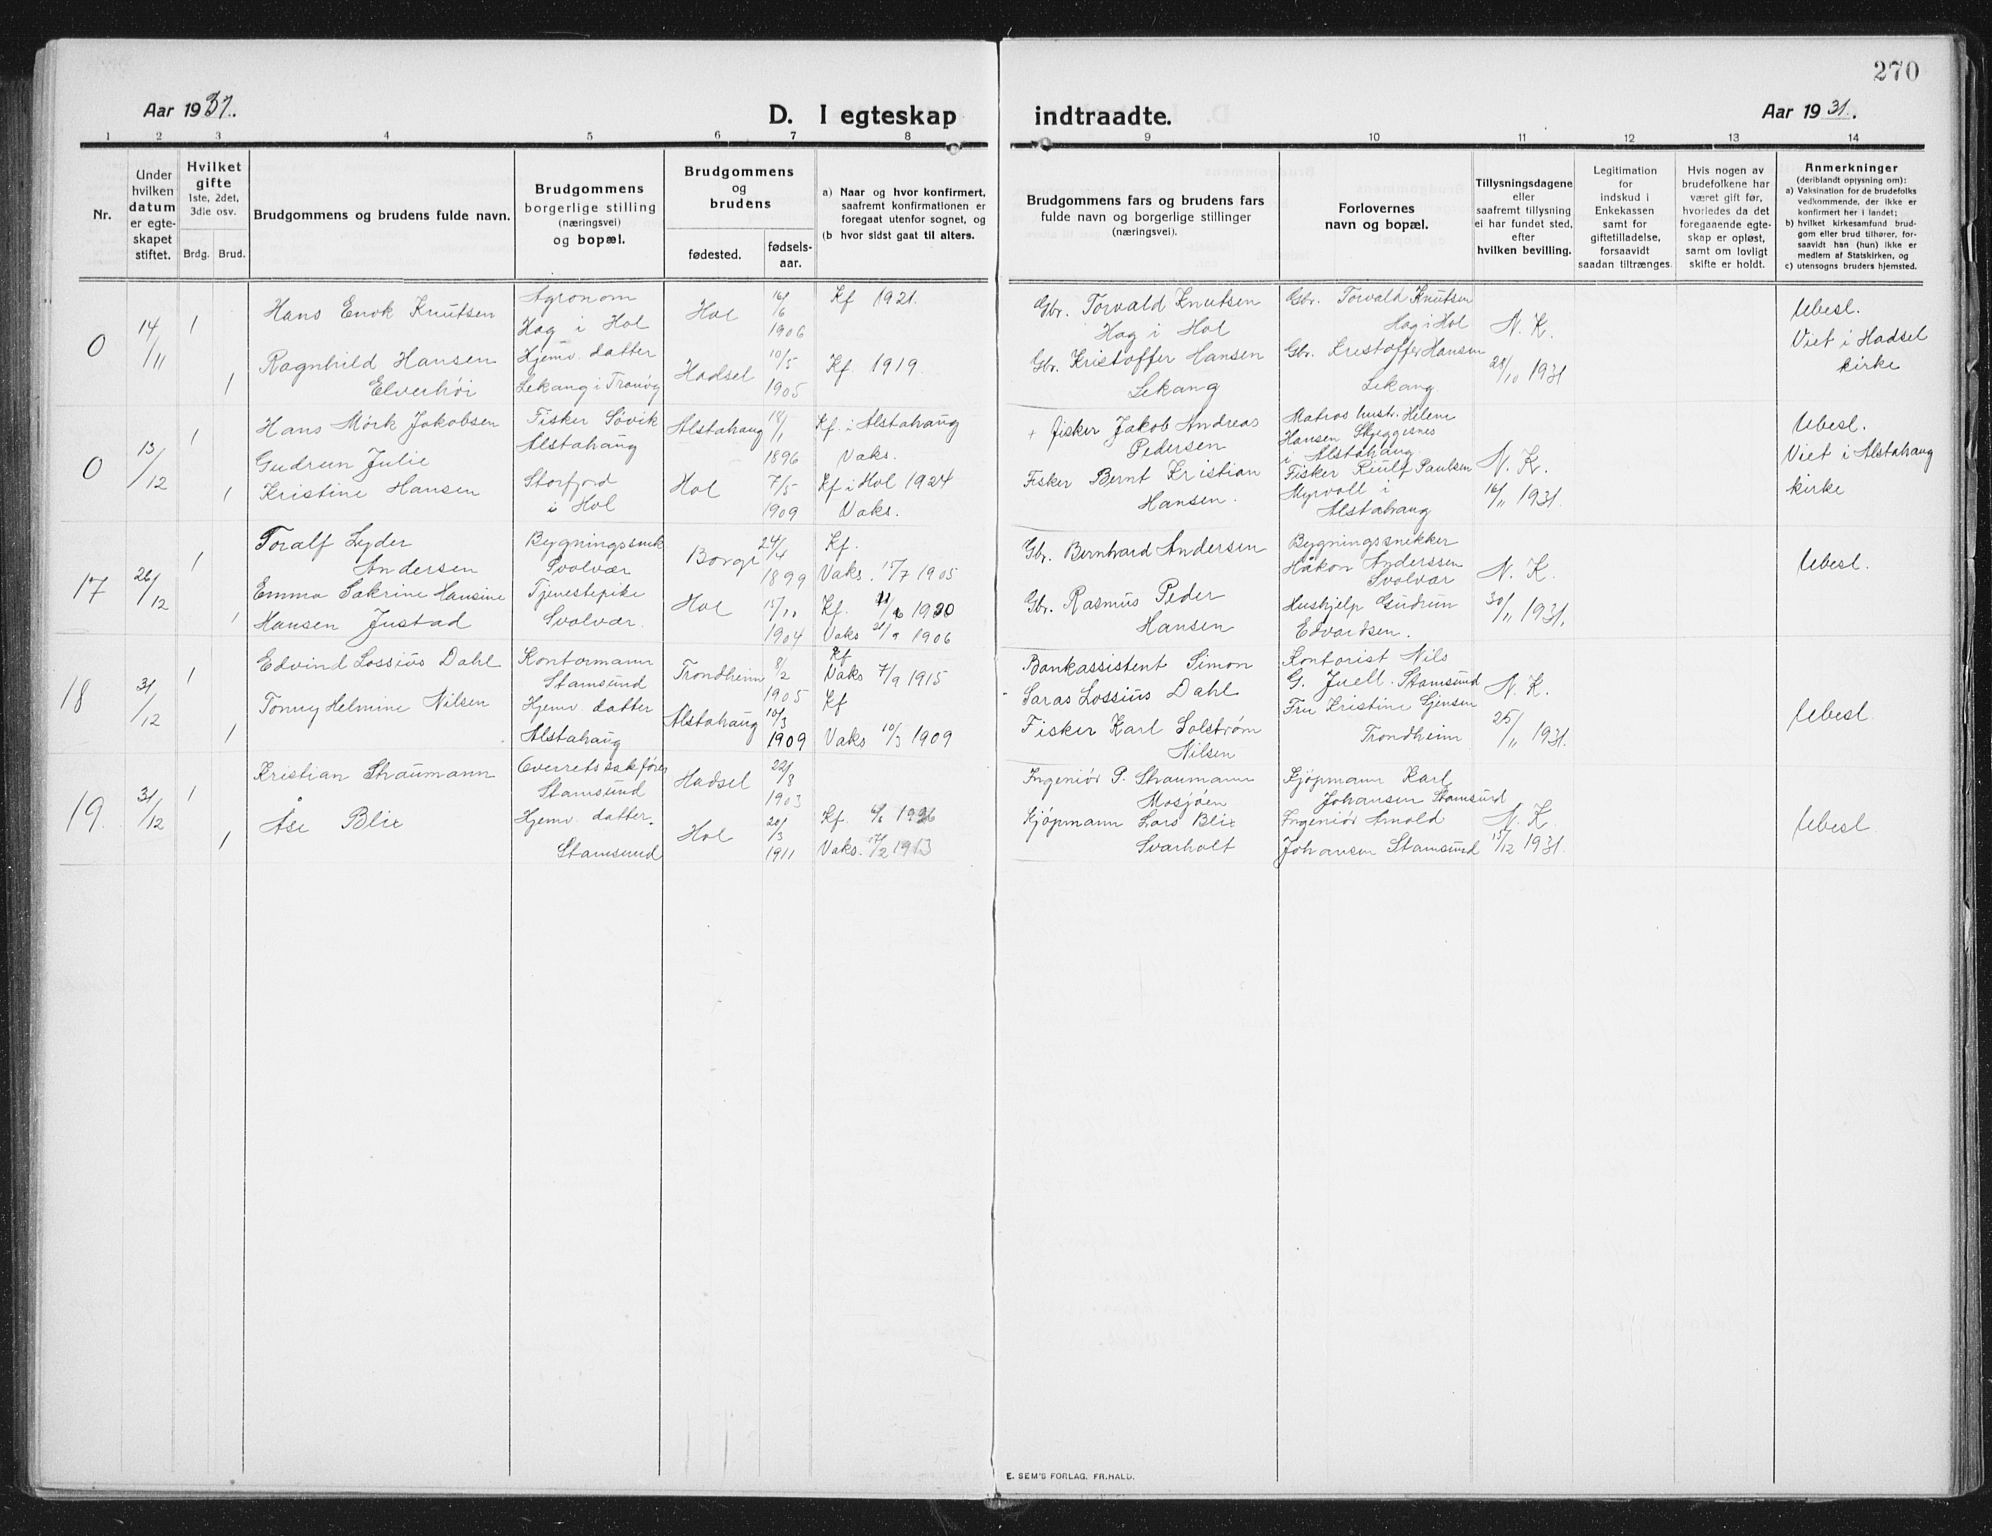 270
Aar 1931.
D. I egteskap
indtraadte.
Aar 1931.
1 2 3 4 5 6 7 8 9 10 11 12 13 14
Nr.
Under
hvilken
datum
er egte-
skapet
stiftet.
Hvilket
gifte
1ste, 2det,
3die osv.
Brdg. Brud.
Brudgommens og brudens fulde navn.
Brudgommens
borgerlige stilling
(næringsvei)
og bopæl.
Brudgommens
og
brudens
fødested.
fødsels-
aar.
a) Naar og hvor konfirmert,
saafremt konfirmationen er
foregaat utenfor sognet, og
(b hvor sidst gaat til alters.
Brudgommens fars og brudens fars
fulde navn og borgerlige stillinger
(næringsvei).
Forlovernes
navn og bopæl.
Tillysningsdagene
eller
saafremt tillysning
ei har fundet sted,
efter
hvilken bevilling.
Legitimation
for
indskud i
Enkekassen
samt for
giftetilladelse,
forsaavidt
saadan tiltrænges.
Hvis nogen av
brudefolkene har
været gift før,
hvorledes da det
foregaaende egte-
skap er opløst,
samt om lovligt
skifte er holdt.
Anmerkninger
(deriblandt opiysning om):
a) Vaksination for de brudefolks
vedkommende, der ikke er
konfirmert her i landet;
b) hvilket kirkesamfund brud-
gom eller brud tilhører, for-
saavidt han (hun) ikke er
medlem af Statskirken, og
c) utensogns bruders hjemsted.
0
14/11
1
Hans Enok Knutsen
Agronom
Hag i Hol
Hol
16/6
1906
Kf 1921.
Gbr. Torvald Knutsen
Hag i Hol
Gbr. Torvald Knutsen
Hag i Hol
N. K.
28/10 1931
Ubesl.
Viet i Hadsel
kirke
1
Ragnhild Hansen
Elverhöi
Hjemv. datter
Lekang i
Hadsel
10/5
1905
Kf 1919.
Gbr. Kristoffer Hansen
Lekang
Gbr. Kristoffer Hansen
Lekang.
0
13/12
1
Hans Mørk Jakobsen
Fisker Søvik
Alstahaug
Alstahaug
1896
Kf. i Alstahaug
Vaks.
+ fisker Jakob Andreas
Pedersen
Matros hustr. Helene
Hansen
i Alstahaug
N. K.
16/11 1931.
Ubesl.
Viet i Alstahaug
kirke
1
Gudrun Julie
Kristine Hansen
Storfjord
i Hol
Hol
7/5
1909
Kf i Hol 1924
Vaks.
Fisker Bernt Kristian
Hansen.
Fisker Paulsen
Myrvoll i
Alstahaug
17
26/12
1
Toralf Lyder
Andersen
Bygningssnek
Svolvær
Borge
24/4
1899
Kf.
Vaks. 15/7 1905
Gbr. Bernhard Andersen
Bygningssnekker
Håkon Anderssen
Svolvær
N. K.
30/11 1931.
Ubesl.
1
Emma Sakrine Hansine
Hansen Justad
Tjenestepike
Svolvær.
Hol
15/10
1904
Kf. 1920
Vaks 21/9 1906
Gbr. Rasmus Peder
Hansen
Hushjelp Gudrun
Edvardsen.
18
31/12
1
Edvind Lossius Dahl
Kontormann
Stamsund
Trondheim
8/2
1905
Kf
Vaks 7/9 1915
Bankassistent Simon
Saras Lossius Dahl
Kontorist Nils
G. Juell. Stamsund
N. K.
25/11 1931.
Ubesl.
1
Tonny Helmine Nilsen
Hjemv. datter
Alstahaug
Alstahaug
10/3
1909
Kf
Vaks 10/3 1909
Fisker Karl Solstrøm
Nilsen
Fru Kristine
Trondheim
19.
31/12
1
Kristian Straumann
Overretssakfører
Stamsund
Hadsel
22/8
1903
Ingeniör P. Straumann
Mosjöen
Kjöpmann Karl
Johansen Stamsund
N. K.
15/12 1931.
Ubesl.
1
Åse Blix
Hjemv. datter.
Stamsund
Hol
20/3
1911
Kf. 1926
Vaks. 17/2 1913
Kjöpmann Lars Blix
Svarholt
Ingeniör Arnold
Johansen Stamsund
E. SEM'S FORLAG. FR.HALD.